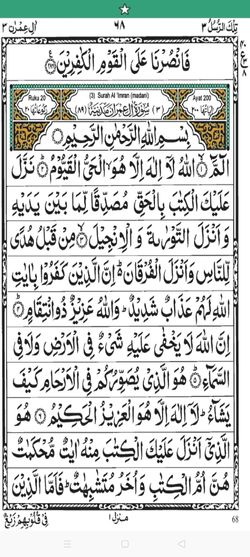 تِلْكَ الرُّسُلُ ٣ ٦٨ اٰلِ عِمْرٰن ٣
فَانْصُرْنَا عَلَى الْقَوْمِ الْكٰفِرِيْنَ
Ruka 20 (3) Surah Al 'Imran (madani) Ayat 200
(٣) سُوْرَةُ اٰلِ عِمْرٰنَ مَدَنِيَّةٌ (٨٩)
بِسْمِ اللّٰهِ الرَّحْمٰنِ الرَّحِيْمِ
الٓمّٓ ۝١ اللّٰهُ لَاۤ اِلٰهَ اِلَّا هُوَ الْحَيُّ الْقَيُّوْمُ ۝٢ نَزَّلَ
عَلَيْكَ الْكِتٰبَ بِالْحَقِّ مُصَدِّقًا لِّمَا بَيْنَ يَدَيْهِ
وَاَنْزَلَ التَّوْرٰىةَ وَالْاِنْجِيْلَ ۝٣ مِنْ قَبْلُ هُدًى
لِّلنَّاسِ وَاَنْزَلَ الْفُرْقَانَ ؕ اِنَّ الَّذِيْنَ كَفَرُوْا بِاٰيٰتِ
اللّٰهِ لَهُمْ عَذَابٌ شَدِيْدٌ ؕ وَاللّٰهُ عَزِيْزٌ ذُو انْتِقَامٍ ۝٤
اِنَّ اللّٰهَ لَا يَخْفٰى عَلَيْهِ شَيْءٌ فِي الْاَرْضِ وَلَا فِي
السَّمَآءِ ۝٥ هُوَ الَّذِيْ يُصَوِّرُكُمْ فِي الْاَرْحَامِ كَيْفَ
يَشَآءُ ؕ لَاۤ اِلٰهَ اِلَّا هُوَ الْعَزِيْزُ الْحَكِيْمُ ۝٦ هُوَ
الَّذِيْۤ اَنْزَلَ عَلَيْكَ الْكِتٰبَ مِنْهُ اٰيٰتٌ مُّحْكَمٰتٌ
هُنَّ اُمُّ الْكِتٰبِ وَاُخَرُ مُتَشٰبِهٰتٌ ؕ فَاَمَّا الَّذِيْنَ
68 منزل ١ فِيْ قُلُوْبِهِمْ زَيْغٌ